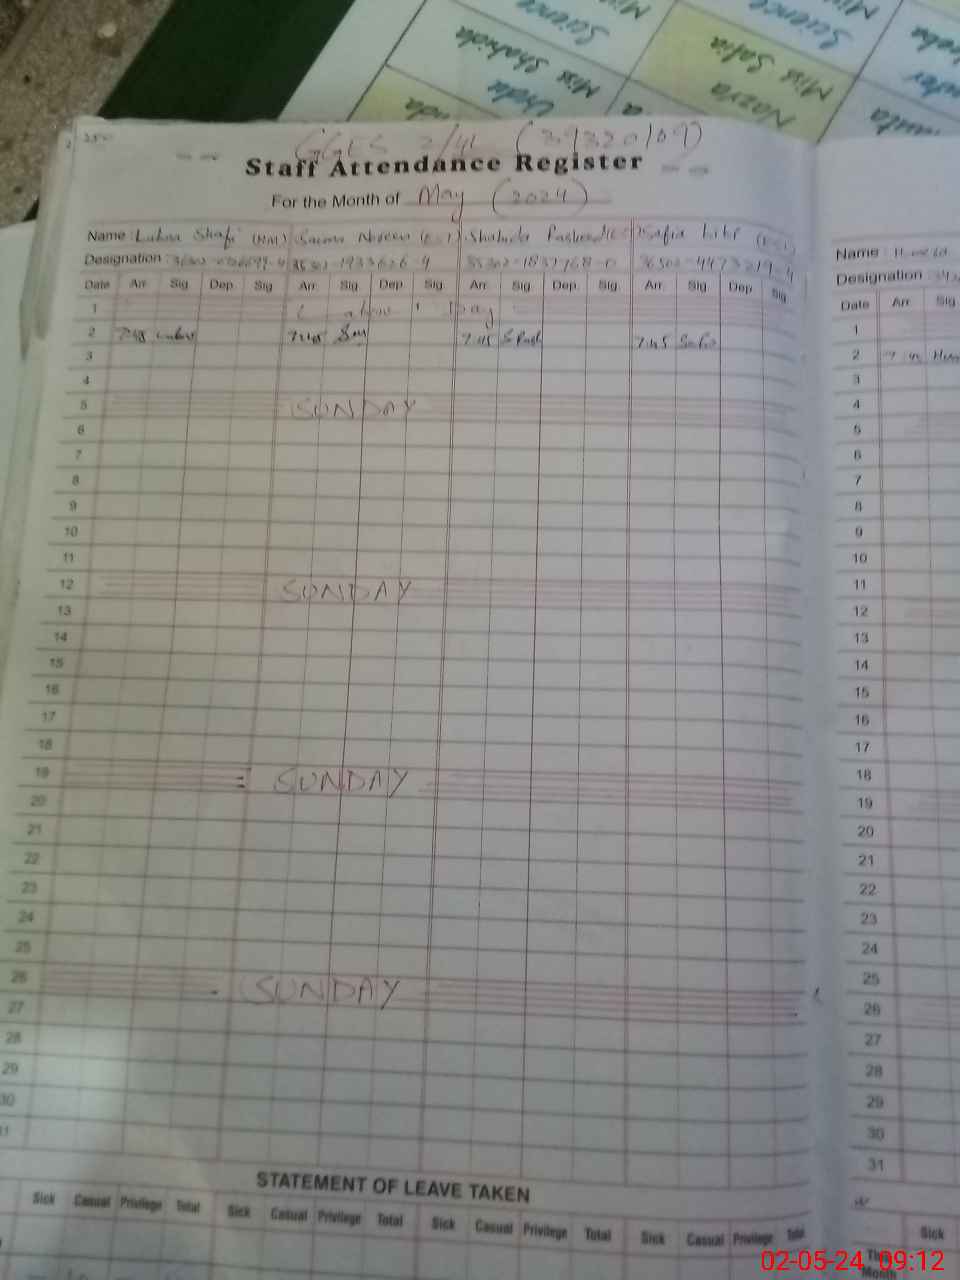 Science
Miss Shahida
Urdu
Miss Safia
Nazra
Science
GGES 2/4L (39320109)
Staff Attendance Register
For the Month of May (2024)
Name : Lubna Shafi (HM) Saima Noreen (EST) Shahida Rasheed Safia Latif (EST)
Name :
Designation : 35302-1933626-4 35302-1837768-0 36502-4473219-4
Designation :
Date Arr. Sig. Dep. Sig. Arr. Sig. Dep. Sig. Arr. Sig. Dep. Sig. Arr. Sig. Dep. Sig.
Date Arr. Sig.
1 Labour Day
1
2 7:45 Lubna 7:45 7:45 S Rash 7:45 Safia
2
3
3
4
4
5 SUNDAY
5
6
6
7
7
8
8
9
9
10
10
11
11
12 SUNDAY
12
13
13
14
14
15
15
16
16
17
17
18
18
19 = SUNDAY
19
20
20
21
21
22
22
23
23
24
24
25
25
26 - SUNDAY
26
27
27
28
28
29
29
30
30
31
31
STATEMENT OF LEAVE TAKEN
Sick Casual Privilege Total Sick Casual Privilege Total Sick Casual Privilege Total Sick Casual Privilege Total
Sick
This Month
02-05-24 09:12